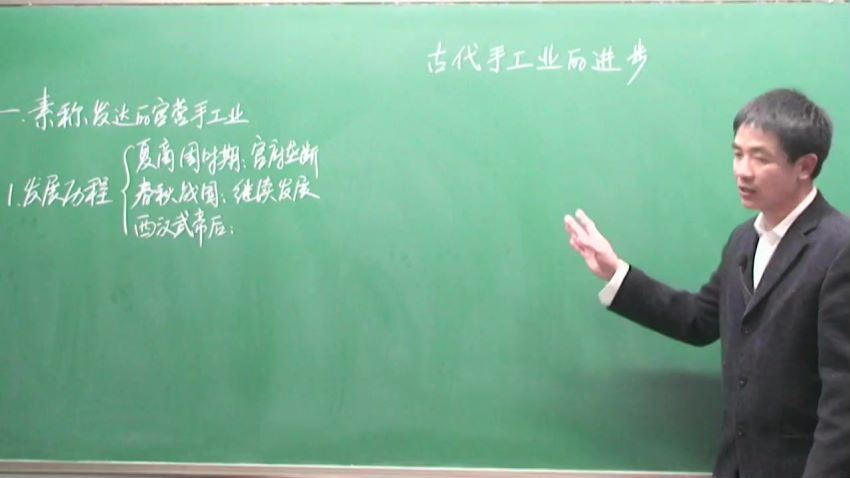 古代手工业的进步
一.素称发达的官营手工业
1.发展历程
夏商周时期:官府垄断
春秋战国:继续发展
西汉武帝后: